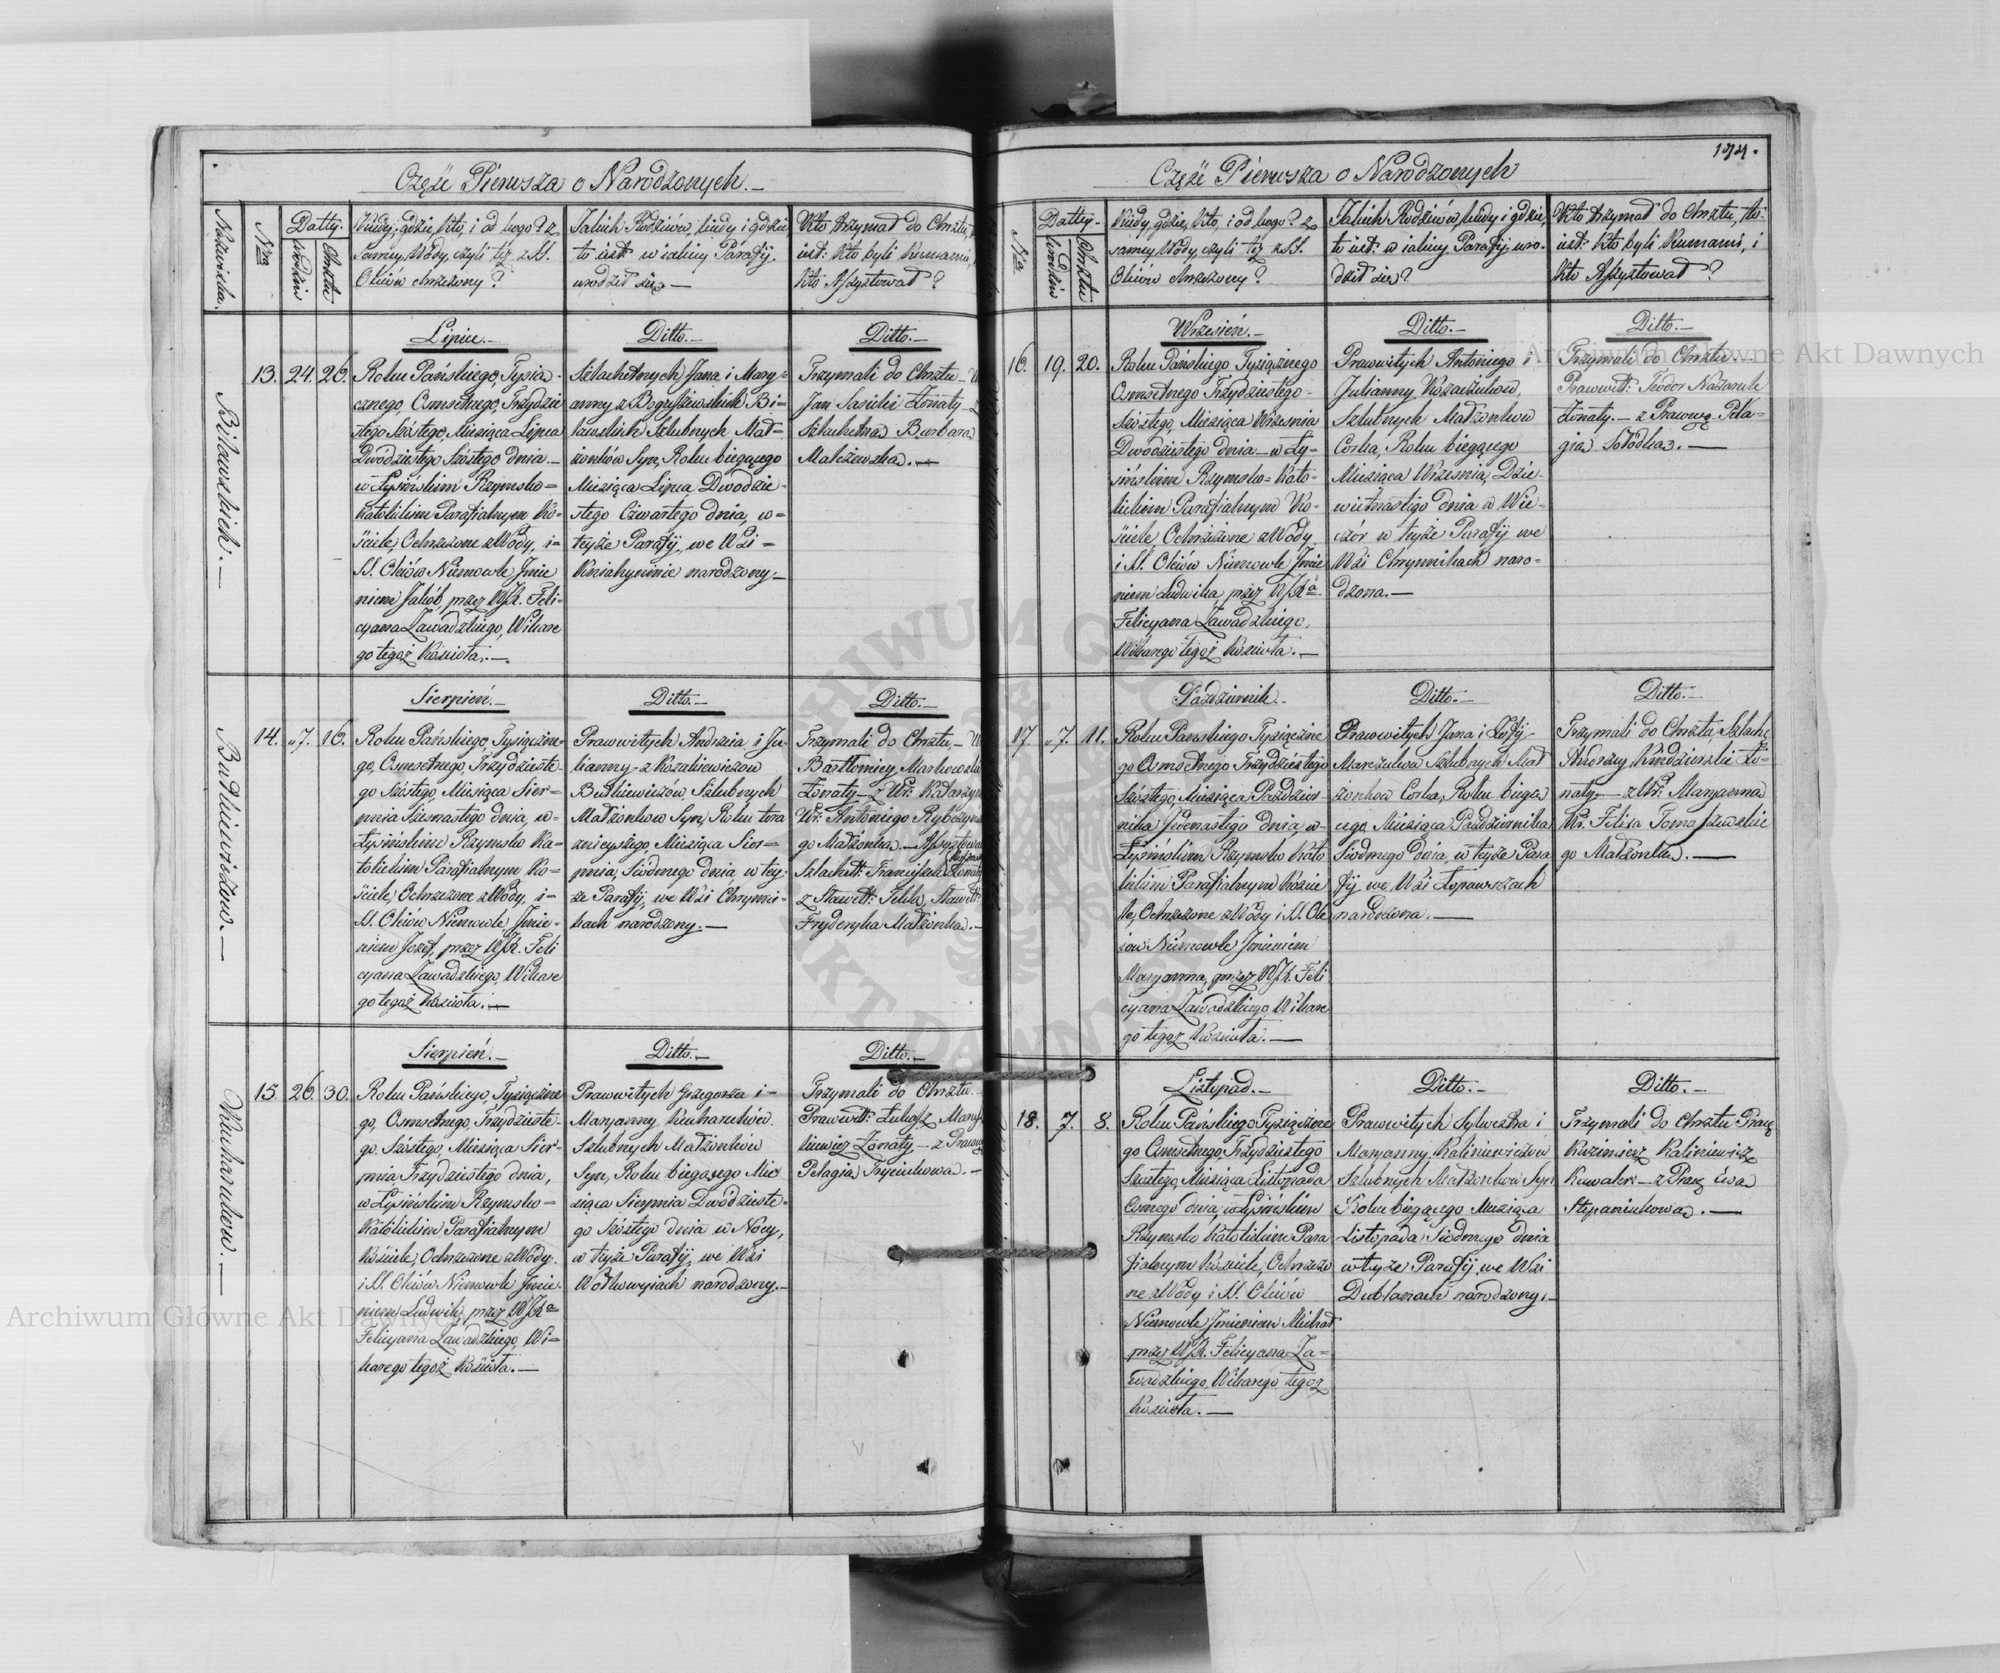 Część Pierwsza o Narodzonych.—
Nazwiska.
Nra
Datty.
Urodzin
Chrztu
Kiedy, gdzie, kto, i od kogo? z
samey Wody, czyli też z SS.
Oleiów chrzczony?
Jakich Rodziców, kiedy i gdzie,
to iest w iakiey Parafij.
urodził się.—
Kto trzymał do Chrztu,
iest: Kto byli Kumami,
kto Assystował?
Bilawskich.—
13.
24.
26.
Lipiec.—
Roku Pańskiego, Tysią-
cznego, Osmsetnego, Trzydzie
stego Szóstego, Miesiąca Lipca
Dwódziestego Szóstego dnia.—
w Łysińskim Rzymsko=
Katolickim Parafialnym Ko-
ściele, Ochrzczone z Wody, i=
SS. Oleiów Niemowle Jmie
niem Jakób, przez WJX. Feli-
cyana Zawadzkiego, Wikare
go tegoż Kościoła.—
Ditto.—
Szlachetnych Jana i Mary-
anny z Boguszewskich Bi-
lawskich Szlubnych Mał-
żonków Syn, Roku biegącego
Miesiąca Lipca Dwodzie-
stego Czwartego dnia, w=
teyże Parafij, we Wsi=
Kniahyninie narodzony.—
Ditto.—
Trzymali do Chrztu
Jan Sasicki Żonaty
Szlachetna Barbara
Malczewska.—
Butkiewiczów.—
14.
7.
16.
Sierpień.—
Roku Pańskiego, Tysiączne-
go, Osmsetnego, Trzydzieste-
go Szóstego, Miesiąca Sier=
pnia Szesnastego dnia, w=
Łysińskim Rzymsko Ka-
tolickim Parafialnym Ko-
ściele, Ochrzczone z Wody, i=
SS. Oleiów Niemowle Jmie-
niem Jozef, przez WJX. Feli
cyana Zawadzkiego, Wikare
go tegoż Kościoła.—
Ditto.—
Prawowitych Andrzeia i Ju-
lianny z Kozakiewiczów
Butkiewiczów, Szlubnych
Małżonkow Syn, Roku tera
znieyszego, Miesiąca Sier-
pnia, Siodmego dnia, w tey-
że Parafij, we Wsi Chrynni-
kach narodzony.—
Ditto.—
Trzymali do Chrztu
Bartłomiey Markowski
Żonaty—z Ur: Katarzyn
Ur: Antoniego Rybczyn
go Małżonka.—Assystował
Szlachett: Franciszek Żonaty
Fryderyka Małżonka.—
Kucharuków.—
15.
26.
30.
Sierpień.—
Roku Pańskiego, Tysiączne
go, Osmsetnego, Trzydzieste-
go Szóstego, Miesiąca Sier-
pnia Trzydziestego dnia,
w Łysińskim Rzymsko=
Katolickim Parafialnym
Kościele, Ochrzczone z Wody
i SS. Oleiów Niemowle Jmie
niem Ludwik, przez WJXa
Felicyana Zawadzkiego, Wi=
karego tegoż Kościoła.—
Ditto.—
Prawowitych Grzegorza i=
Maryanny Kucharuków
Szlubnych Małżonków
Syn, Roku biegącego Mie
siąca Sierpnia Dwódzieste-
go Szóstego dnia w Nocy,
w teyże Parafij, we Wsi
Wołkowyiach narodzony.—
Ditto.—
Trzymali do Chrztu
Prawowit: Łukasz
Żonaty—z Prawow
Pelagia
174.
Część Pierwsza o Narodzonych
Nra
Datty.
Urodzin
Chrztu
Kiedy, gdzie, Kto, i od kogo? z
samey Wody, czyli też z SS.
Oleiów chrzczony?
Jakich Rodziców, kiedy i gdzie,
to iest: w iakiey Parafij, uro-
dził się?
Kto trzymał do Chrztu, to:
iest: Kto byli Kumami, i
kto Assystował?
16.
19.
20.
Wrzesień.—
Roku Pańskiego Tysiącznego
Osmsetnego Trzydziestego-
Szóstego, Miesiąca Września
Dwodziestego dnia—w Ły-
sińskim Rzymsko-Kato-
lickim Parafialnym Ko-
ściele, Ochrzczone z Wody
i SS. Oleiów Niemowle Jmie
niem Ludwika, przez WJXa
Felicyana Zawadzkiego,
Wikarego tegoż Kościoła.—
Ditto.—
Prawowitych Antoniego i
Julianny Kozaczuków,
Szlubnych Małżonków
Corka, Roku biegącego
Miesiąca Września, Dzie-
wietnastego dnia w Wie-
czór w teyże Parafij we
Wsi Chrynnikach naro-
dzona.—
Ditto.—
Trzymali do Chrztu
Prawowit: Teodor Nazaruk
Żonaty.—z Prawową Pela-
gia Sołodka.—
17.
7.
11.
Październik.—
Roku Pańskiego Tysiączne
go Osmsetnego Trzydziestego
Szóstego, Miesiąca Paździer-
nika Jedenastego dnia, w=
Łysińskim Rzymsko Kato
lickim Parafialnym Koście
le, Ochrzczone z Wody i SS. Ole
iow Niemowle Jmieniem
Maryanna, przez WJX. Feli
cyana Zawadzkiego Wikare
go tegoż Kościoła.—
Ditto.—
Prawowitych Jana i Zofij
Marczuków Szlubnych Mał
żonkow Corka, Roku biegą
cego, Miesiąca Października
Siodmego Dnia, w teyże Para
fij we Wsi Łopawszach
narodzona.—
Ditto.—
Trzymali do Chrztu Szlach:
Żo-
naty.—z Ur: Maryanna
Ur: Felixa Tomaszewskie
go Małżonka.—
18.
7.
8.
Listopad.—
Roku Pańskiego Tysiączne
go Osmsetnego, Trzydziestego
Szostego, Miesiąca Listopada
Osmego dnia, w Łysińskim
Rzymsko Katolickim Para
fialnym Kościele, Ochrzczo
ne z Wody i SS. Oleiów
Niemowle Jmieniem Michał
przez WJX. Felicyana Za=
wadzkiego, Wikarego tegoż
Kościoła.—
Ditto.—
Prawowitych Sylwestra i
Maryanny Kaliniewiczów
Szlubnych Małżonków Syn
Roku biegącego Miesiąca
Listopada Siodmego dnia
w teyże Parafij, we Wsi
Dublanach narodzony.—
Ditto.—
Trzymali do Chrztu Praw
Kazimierz Kaliniewicz
Kawaler.—z Praw Ewa
Stepaniukowa.—
Archiwum Główne Akt Dawnych
Archiwum Główne Akt Dawnych